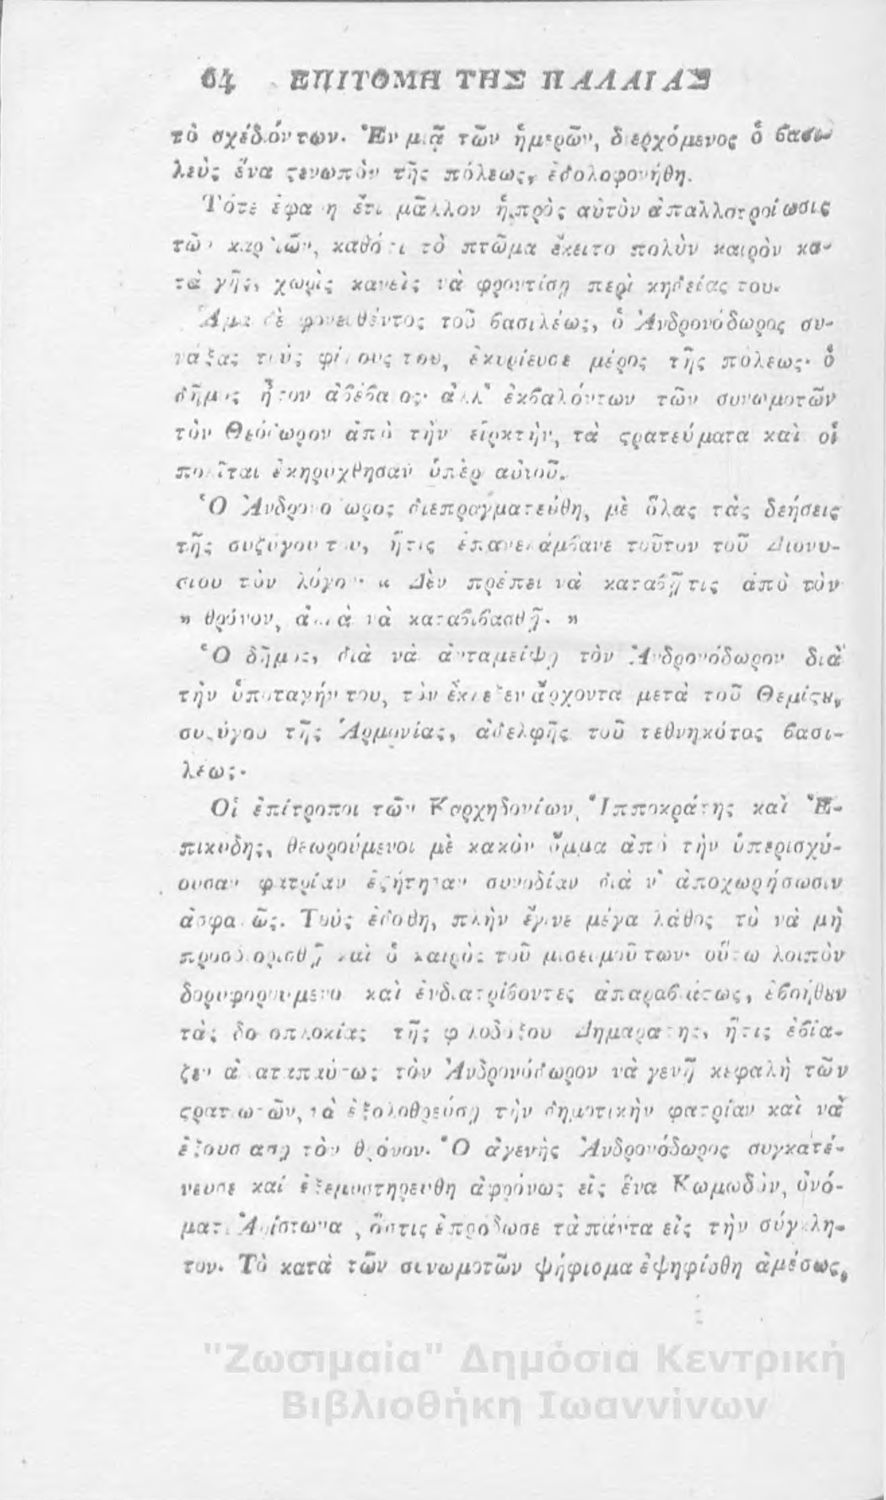 64 ΕΠΙΤΟΜΗ ΤΗΣ ΠΑΛΑΙΑΣ
τὸ σχέδιόν των. Ἐν μιᾷ τῶν ἡμερῶν, διερχόμενος ὁ βασι-
λεὺς ἕνα ϛενωπὸν τῆς πόλεως, ἐδολοφονήθη.
Τότε ἐφάνη ἔτι μᾶλλον ἡ πρὸς αὐτὸν ἀπαλλοτρίωσις
τῶν καρδιῶν, καθότι τὸ πτῶμα ἔκειτο πολὺν καιρὸν κα-
τὰ γῆς, χωρὶς κανεὶς νὰ φροντίσῃ περὶ κηδείας του.
Ἅμα δὲ φονευθέντος τοῦ βασιλέως, ὁ Ἀνδρονόδωρος συ-
νάξας τοὺς φίλους του, ἐκυρίευσε μέρος τῆς πόλεως· ὁ
δῆμος ἦτον ἀβέβαιος· ἀλλ' ἐκβαλόντων τῶν συνωμοτῶν
τὸν Θεόδωρον ἀπὸ τὴν εἱρκτὴν, τὰ ϛρατεύματα καὶ οἱ
πολῖται ἐκηρύχθησαν ὑπὲρ αὐτοῦ.
Ὁ Ἀνδρονόδωρος διεπραγματεύθη, μὲ ὅλας τὰς δεήσεις
τῆς συζύγου του, ἥτις ἐπανελάμβανε τοῦτον τοῦ Διονυ-
σίου τὸν λόγον· « Δὲν πρέπει νὰ καταβῇ τις ἀπὸ τὸν
» θρόνον, ἀλλὰ νὰ καταβιβασθῇ. »
Ὁ δῆμος, διὰ νὰ ἀνταμείψῃ τὸν Ἀνδρονόδωρον διὰ
τὴν ὑποταγήν του, τὸν ἐξέλεξεν ἄρχοντα μετὰ τοῦ Θεμίϛȣ,
συζύγου τῆς Ἁρμονίας, ἀδελφῆς τοῦ τεθνηκότος βασι-
λέως.
Οἱ ἐπίτροποι τῶν Καρχηδονίων, Ἱπποκράτης καὶ Ἐ-
πικύδης, θεωρούμενοι μὲ κακὸν ὄμμα ἀπὸ τὴν ὑπερισχύ-
ουσαν φατρίαν ἐζήτησαν συνοδίαν διὰ ν' ἀποχωρήσωσιν
ἀσφαλῶς. Τοὺς ἐδόθη, πλὴν ἔγινε μέγα λάθος τὸ νὰ μὴ
προσδιορισθῇ καὶ ὁ καιρὸς τοῦ μισευμοῦ των· οὕτω λοιπὸν
δορυφορούμενοι καὶ ἐνδιατρίβοντες ἀπαραβιάστως, ἐβοήθȣν
τὰς δολοπλοκίας τῆς φιλοδόξου Δημαράτης, ἥτις ἐβία-
ζεν ἀκαταπαύστως τὸν Ἀνδρονόδωρον νὰ γενῇ κεφαλὴ τῶν
ϛρατιωτῶν, νὰ ἐξολοθρεύσῃ τὴν δημοτικὴν φατρίαν καὶ νὰ
ἐξουσιάσῃ τὸν θρόνον. Ὁ ἀγενὴς Ἀνδρονόδωρος συγκατέ-
νευσε καὶ ἐξεμυστηρεύθη ἀφρόνως εἰς ἕνα Κωμωδὸν, ὀνό-
ματι Ἀρίστωνα, ὅστις ἐπρόδωσε τὰ πάντα εἰς τὴν σύγκλη-
τον. Τὸ κατὰ τῶν συνωμοτῶν ψήφισμα ἐψηφίσθη ἀμέσως,
"Ζωσιμαία" Δημόσια Κεντρική
Βιβλιοθήκη Ιωαννίνων